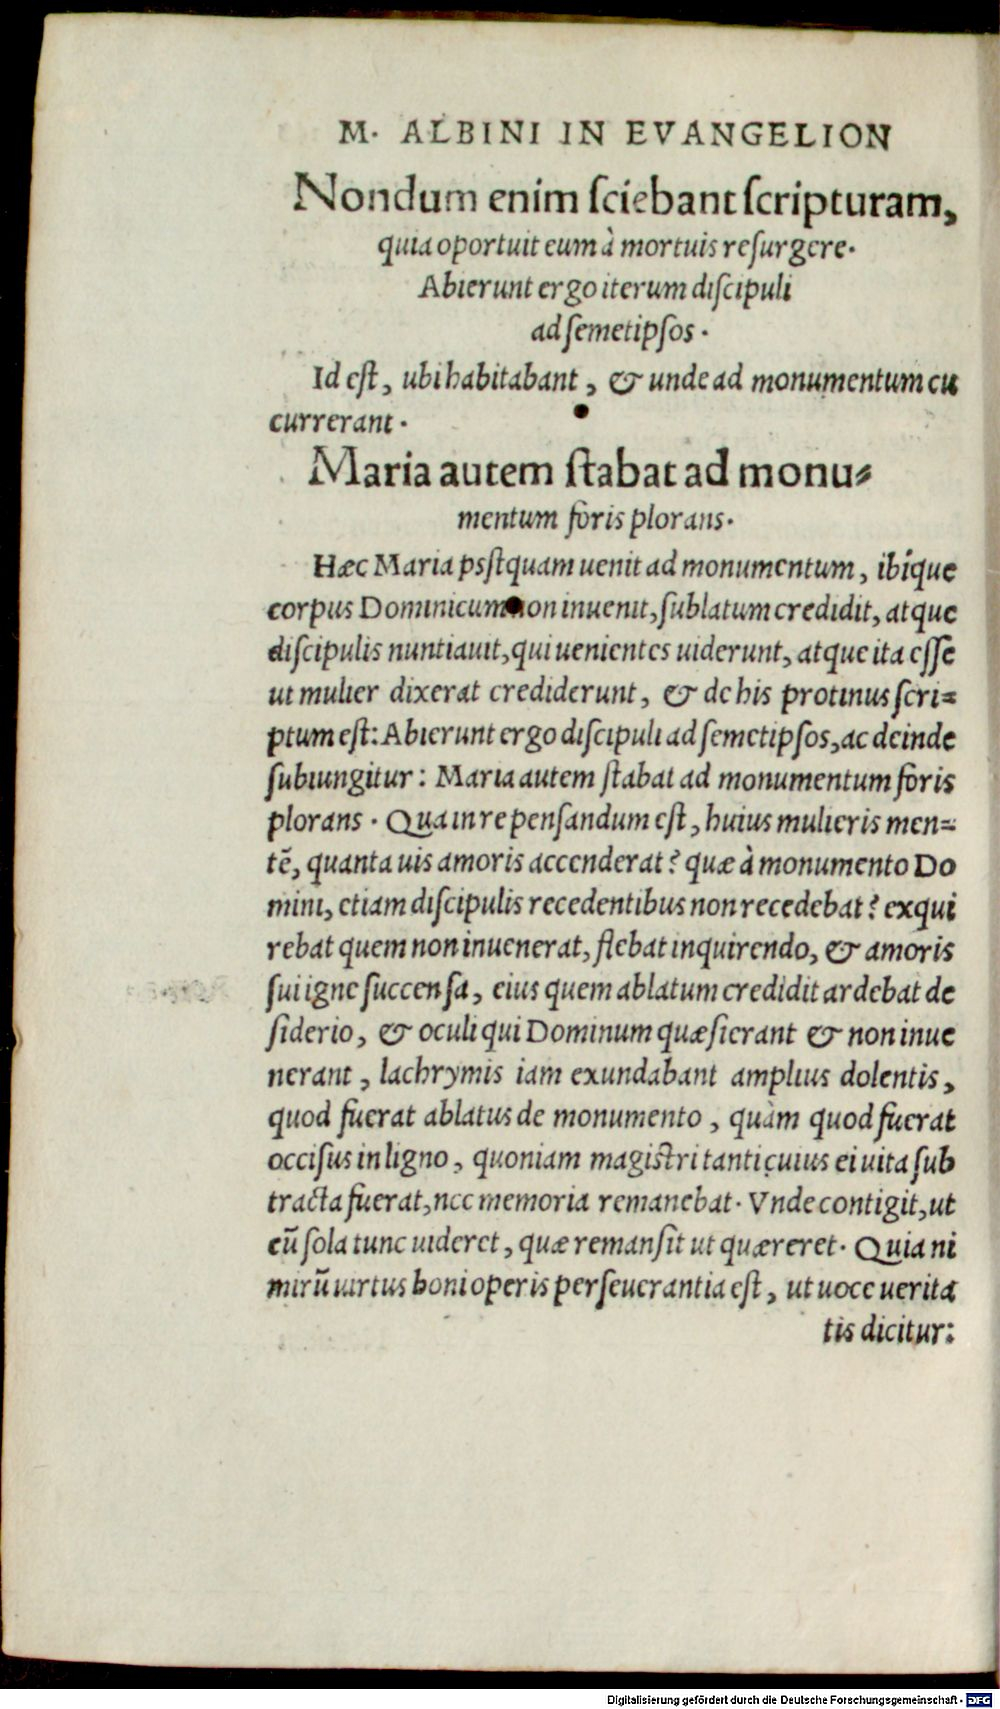 M. ALBINI IN EVANGELION
Nondum enim ſciebant ſcripturam,
quia oportuit eum à mortuis reſurgere.
Abierunt ergo iterum diſcipuli
ad ſemetipſos.
Id eſt, ubi habitabant, & unde ad monumentum cu
currerant.
Maria autem ſtabat ad monu⸗
mentum foris plorans.
Hæc Maria psſtquam uenit ad monumentum, ibíque
corpus Dominicum non inuenit, ſublatum credidit, atque
diſcipulis nuntiauit, qui uenientes uiderunt, atque ita eſſe
ut mulier dixerat crediderunt, & de his protinus ſcri⸗
ptum eſt: Abierunt ergo diſcipuli ad ſemetipſos, ac deinde
ſubiungitur: Maria autem ſtabat ad monumentum foris
plorans. Qua in re penſandum eſt, huius mulieris men⸗
tē, quanta uis amoris accenderat? quæ à monumento Do
mini, etiam diſcipulis recedentibus non recedebat? exqui
rebat quem non inuenerat, flebat inquirendo, & amoris
ſui igne ſuccenſa, eius quem ablatum credidit ardebat de
ſiderio, & oculi qui Dominum quæſierant & non inue
nerant, lachrymis iam exundabant amplius dolentis,
quod fuerat ablatus de monumento, quàm quod fuerat
occiſus in ligno, quoniam magiſtri tanti cuius ei uita ſub
tracta fuerat, nec memoria remanebat. Vnde contigit, ut
eū ſola tunc uideret, quæ remanſit ut quæreret. Quia ni
mirū uirtus boni operis perſeuerantia eſt, ut uoce uerita
tis dicitur:
Digitalisierung gefördert durch die Deutsche Forschungsgemeinschaft - DFG